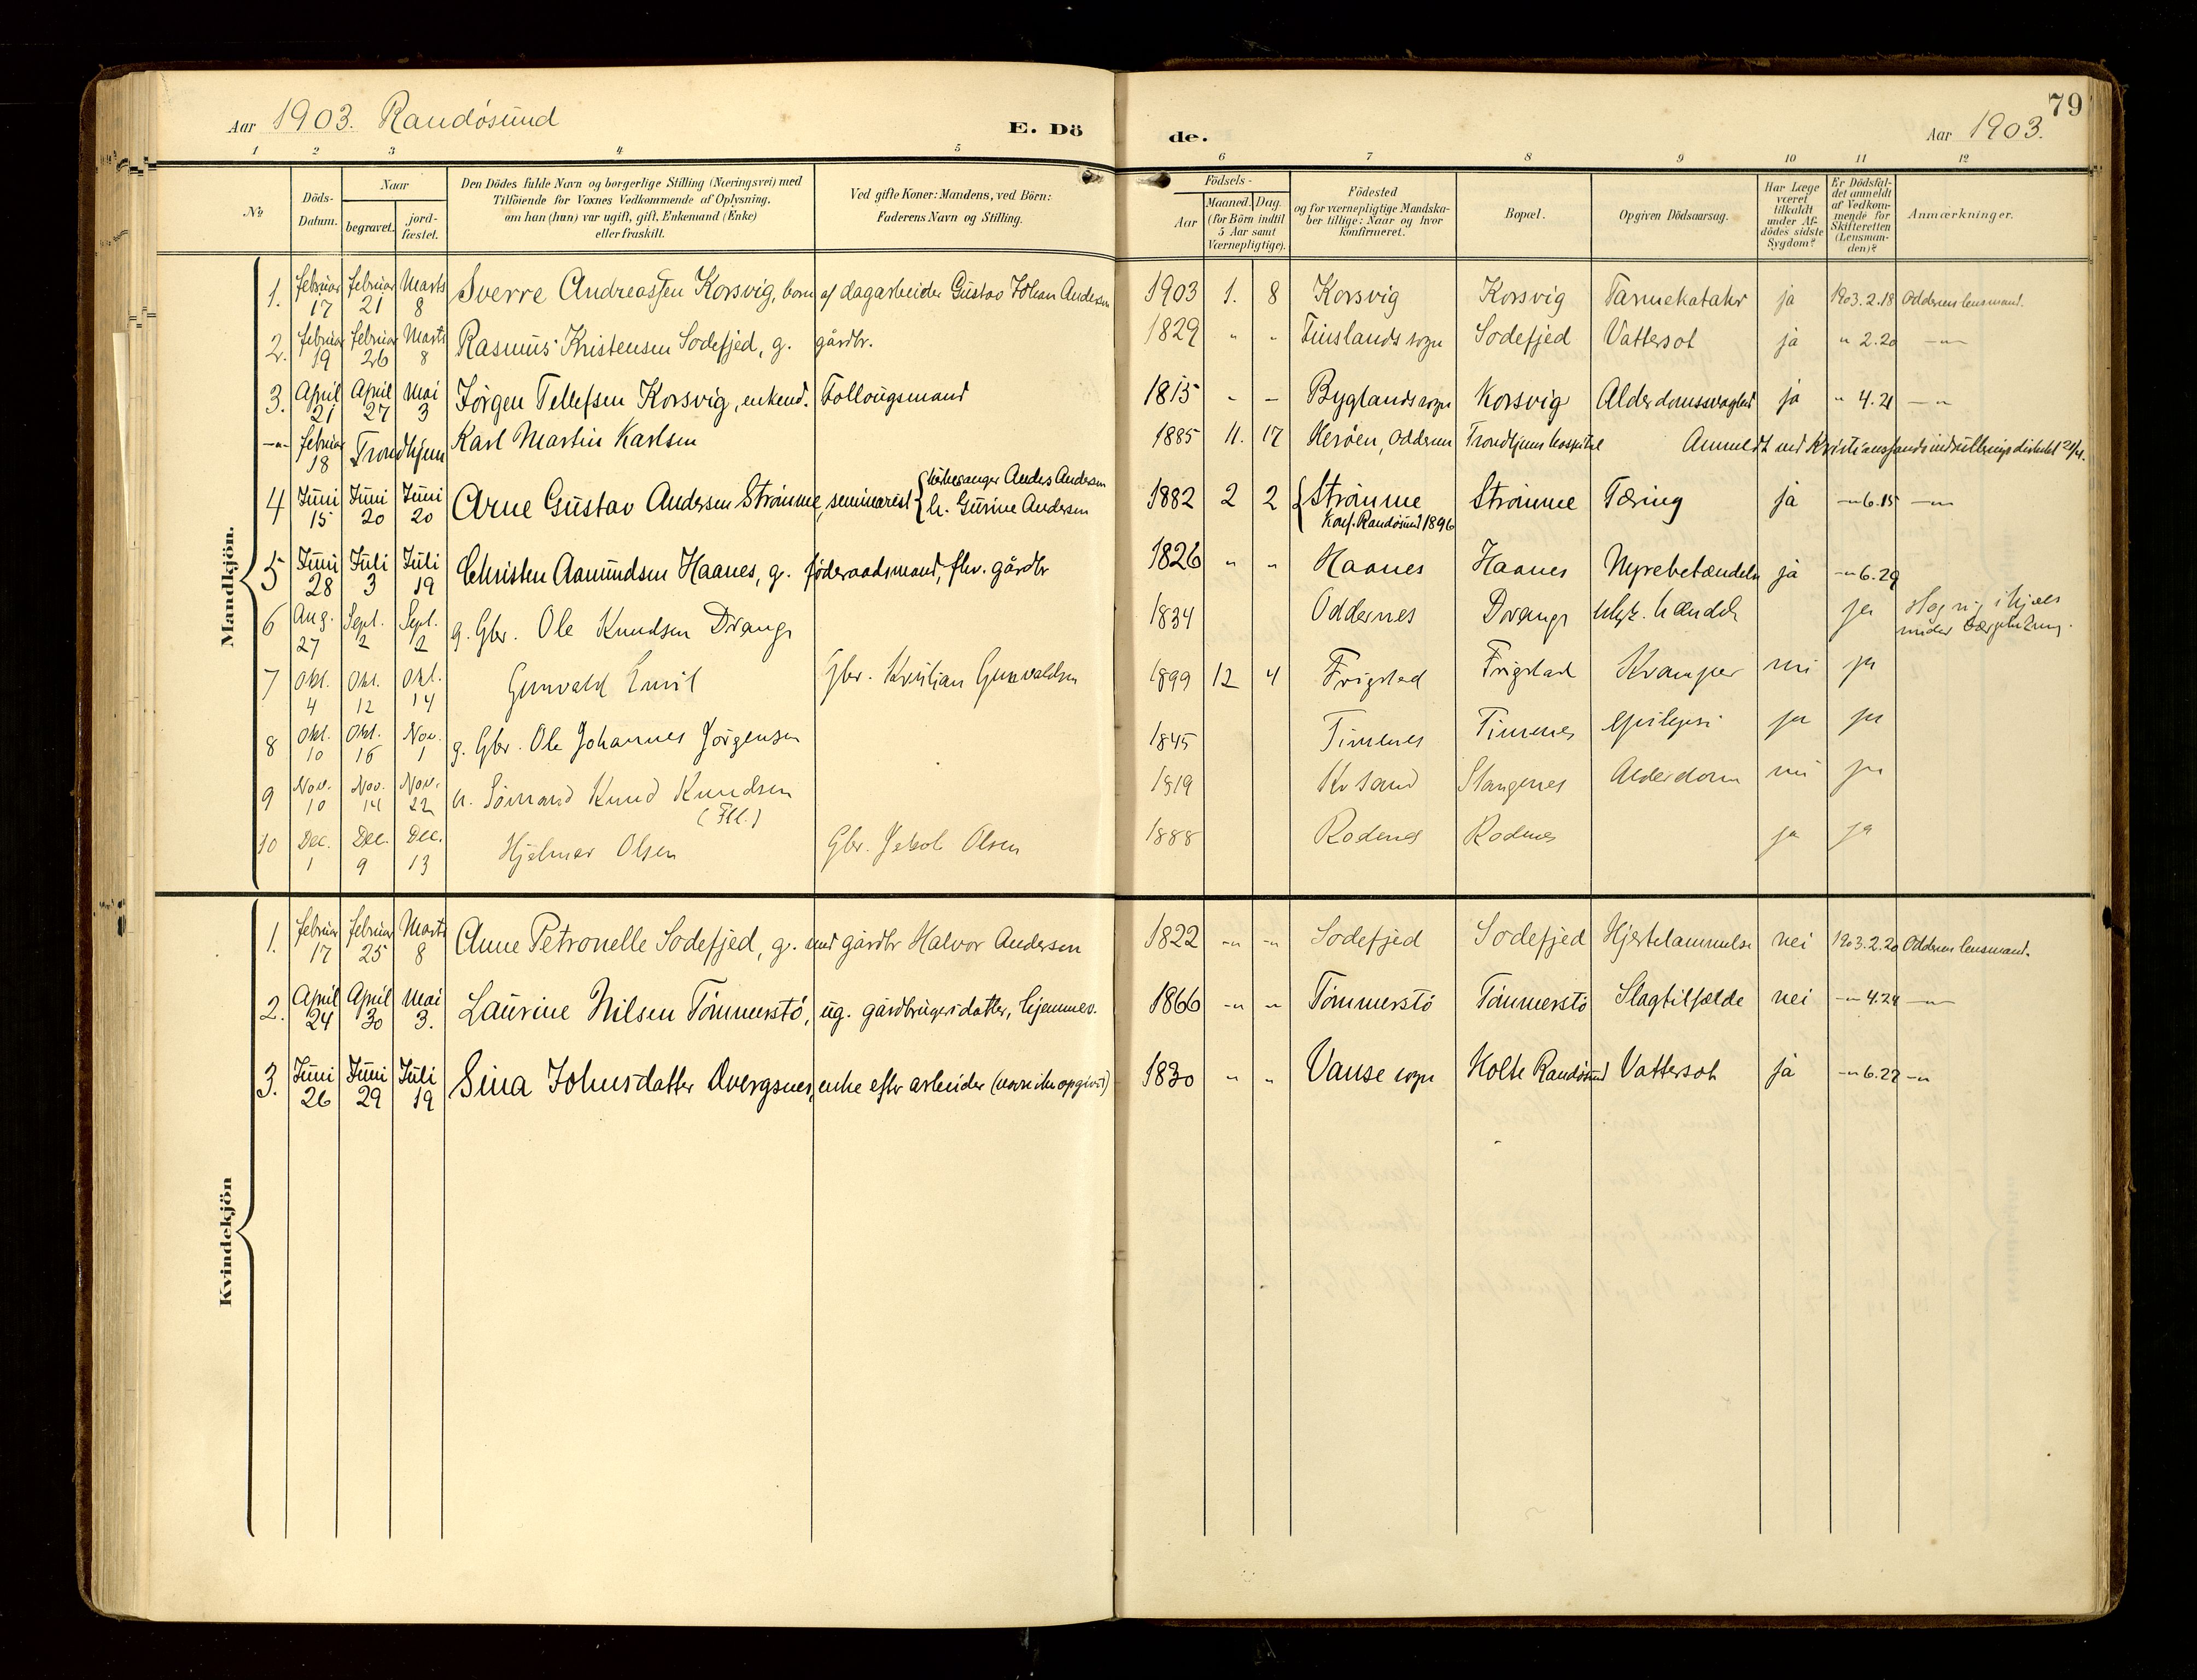 79
Aar 1903. Randösund E. Dö de. Aar 1903.
1 2 3 4 5 6 7 8 9 10 11 12
No
Döds-Datum.
Naar
begravet.
jord-fæstet.
Den Dödes fulde Navn og borgerlige Stilling (Næringsvei) med
Tilföiende for Voxnes Vedkommende af Oplysning,
om han (hun) var ugift, gift, Enkemand (Enke)
eller fraskilt.
Ved gifte Koner: Mandens, ved Börn:
Faderens Navn og Stilling.
Födsels-
Aar
Maaned. Dag.
(for Börn indtil
5 Aar samt
Værnepligtige).
Födested
og for værnepligtige Mandska-
ber tillige: Naar og hvor
konfirmeret.
Bopæl.
Opgiven Dödsaarsag.
Har Læge
været
tilkaldt
under Af-
dödes sidste
Sygdom?
Er Dödsfal-
det anmeldt
af Vedkom-
mende for
Skifteretten
(Lensman-
den)?
Anmærkninger.
Mandkjön.
1. februar 17 februar 21 Marts 8 Sverre Andreassen Korsvig, barn af dagarbeider Gustav Johan Andersen 1903 1. 8 Korsvig Korsvig Tarmekatahr ja 1903.2.18 Oddernes lensmand.
2. februar 19 februar 26 Marts 8 Rasmus Kristensen Sodefjed, g. gårdbr. 1829 " " Finslands sogn Sodefjed Vattersot ja " 2.20 —"—
3. April 21 April 27 Mai 3 Jörgen Tellefsen Korsvig, enkem. Follougsmand 1815 - - Byglands sogn Korsvig Alderdomssvaghed ja " 4.21 —"
—"— februar 18 Trondhjem Karl Martin Karlsen 1885 11. 17 Herøen, Oddernes Trondhjems hospital Anmeldt ved Kristianssands indrulleringsdistrikt 21/4.
4 Juni 15 Juni 20 Juni 20 Arne Gustav Andersen Strömme, seminarist { kirkesanger Anders Andersen
h. Gurine Andersen 1882 2 2 { Strömme Strömme Tæring ja —"6.15 —"—
Konf. Randösund 1896
5 Juni 28 Juli 3 Juli 19 Christen Aamundsen Haanes, g. föderaadsmand, fhv. gårdbr 1826 " " Haanes Haanes Nyrebetændelse ja —"6.29
6 Aug. 27 Sept. 2 Sept. 2 g. Gbr. Ole Knudsen Drange 1834 Oddernes Drange Ulyk. hændelse ja Slog sig ihjæl
under
7 Okt. 4 Okt. 12 Okt. 14 Gunvald Emil Gbr. Kristian Gunvaldsen 1899 12 4 Frigsted Frigstad Kramper nei ja
8 Okt. 10 Okt. 16 Nov. 1 g. Gbr. Ole Johannes Jörgensen 1845 Timenes Timenes epilepsi ja ja
9 Nov. 10 Nov. 14 Nov. 22 Sömand Knud Knudsen 1819 Kr sand Stangenes Alderdom nei ja
10 Dec. 1 Dec. 9 Dec. 13 Hjelmar Olsen Gbr. Jakob Olsen 1888 Rodenes Rodenes ja ja
Kvindekjön
1. februar 17 februar 25 Marts 8 Anne Petronelle Sodefjed, g. med gårdbr Halvor Andersen 1822 —"— —"— Sodefjed Sodefjed Hjertelammelse nei 1903.2.20 Oddernes lensmand.
2. April 24 April 30 Mai 3. Laurine Nilsen Tömmerstö, ug. gårdbrugersdatter, hjemmev. 1866 —" —" Tömmerstö Tömmerstö Slagtilfælde nei —"4.24 —"—
3. Juni 26 Juni 29 Juli 19 Sina Johnsdatter Dvergsnes, enke efter arbeider (navn ikke opgivet) 1830 " " Vanse sogn Holte Randösund Vattersot ja —"6.27 —"